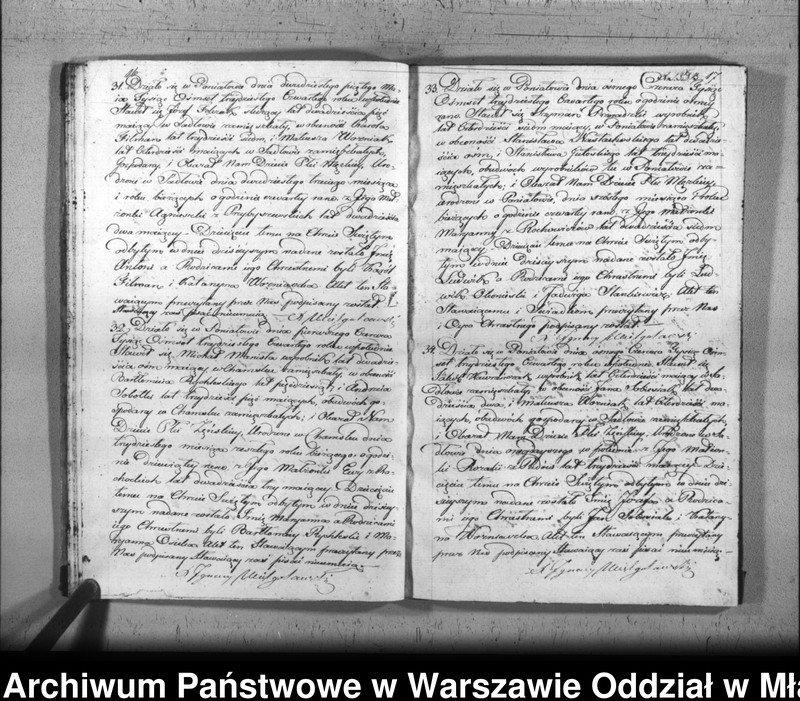 16
31. Działo się w Poniatowa dnia dwudziestego piątego Ma
ia Tysiąc Ośmset trzydziestego Czwartego roku
Stawił się Józef służący lat dwadzieścia pięć
maiący w Sadłowie zamieszkały, w obecności Karola
Filman lat trzydzieści siedm, i Mateusza Woźniak
lat Czterdzieści maiących w Sadłowie zamieszkałych,
Gospodarzy i Okazał Nam Dziecie Płci Męzkiey, Uro
dzone w Sadłowie dnia dwudziestego trzeciego miesiąca
i roku bieżących o godzinie czwartey rano z Jego Mał
żonki Agnieszki z Przybyszewskich lat dwadzieścia
dwa maiącey. Dziecięciu temu na Chrzcie Świętym
odbytym w dniu dzisieyszym nadane zostało Jmie
Antoni a Rodzicami iego Chrzestnemi byli Karol
Filman i Katarzyna Woźniacka Akt ten Sta
waiącym przeczytany przez Nas podpisany został
Stawaiący zaś pisać nieumieią
32. Działo się w Poniatowa dnia pierwszego Czerwca
Tysiąc Ośmset trzydziestego Czwartego roku w południe
Stawił się Michał wyrobnik lat dwadzie
ścia ośm maiący w Chamsku zamieszkały, w obecności
Bartłomieia Rychlskiego lat pięćdziesiąt, i Andrzeia
Sobotki lat trzydzieści pięć maiących, obudwóch go
spodarzy w Chamsku zamieszkałych; i Okazał Nam
Dziecie Płci Żeńskiey, Urodzone w Chamsku dnia
trzydziestego miesiąca zeszłego roku bieżącego o godzi
nie dziewiątey rano z Jego Małżonki Ewy z
lat dwadzieścia trzy maiącey Dziecięciu
temu na Chrzcie Świętym odbytym w dniu dzisiey
szym nadane zostało Jmie Maryanna a Rodzicami
iego Chrzestnemi byli Bartłomiey Rychlski i Ma
ryanna Akt ten Stawaiącym przeczytany przez
Nas podpisany Stawaiący zaś pisać nieumieią
X Ignacy
17
33. Działo się w Poniatowa dnia ósmego Czerwca Tysiąc
Ośmset trzydziestego Czwartego roku o godzinie ósmey
rano Stawił się Szymon wyrobnik
lat Czterdzieści siedm maiący, w Poniatowie zamieszkały,
w obecności Stanisława lat dwadzie
ścia ośm, i Stanisława lat trzydzieści ma
iących, obudwóch wyrobników tu w Poniatowie za
mieszkałych, i Okazał Nam Dziecie Płci Męzkiey
urodzone w Poniatowie, dnia szóstego miesiąca i roku
bieżących o godzinie czwartey rano z Jego Małżonki
Maryanny z lat dwadzieścia siedm
maiącey Dziecięciu temu na Chrzcie Świętym odby
tym w dniu dzisieyszym nadane zostało Jmie
Ludwik a Rodzicami iego Chrzestnemi byli Lud
wik i Jadwiga Stankiewicz, Akt ten
Stawaiącemu i Świadkom przeczytany przez Nas
i Oyca Chrzestnego podpisany został
X Ignacy
34. Działo się w Poniatowa dnia ósmego Czerwca Tysiąc Ośm
set trzydziestego Czwartego roku w południe Stawił się
Jakób wyrobnik lat Czterdzieści maiący w Sa
dłowie zamieszkały, w obecności Jana lat dwa
dzieścia dwa, i Mateusza Woźniak lat Czterdzieści ma
iących, obudwóch gospodarzy w Sadłowie zamieszkałych,
i Okazał Nam Dziecie Płci Żeńskiey, Urodzone w Sa
dłowie dnia w południe z Jego Małżon
ki Rozalii z lat trzydzieści maiącey Dzie
cięciu temu na Chrzcie Świętym odbytym w dniu dzi
sieyszym nadane zostało Jmie Józefa a Rodzica
mi iego Chrzestnemi byli Jan i Katarzy
na Woźniacka Akt ten Stawaiącym przeczytany
przez Nas podpisany Stawaiący zaś pisać nieumieią
X Ignacy
Archiwum Państwowe w Warszawie Oddział w Mła